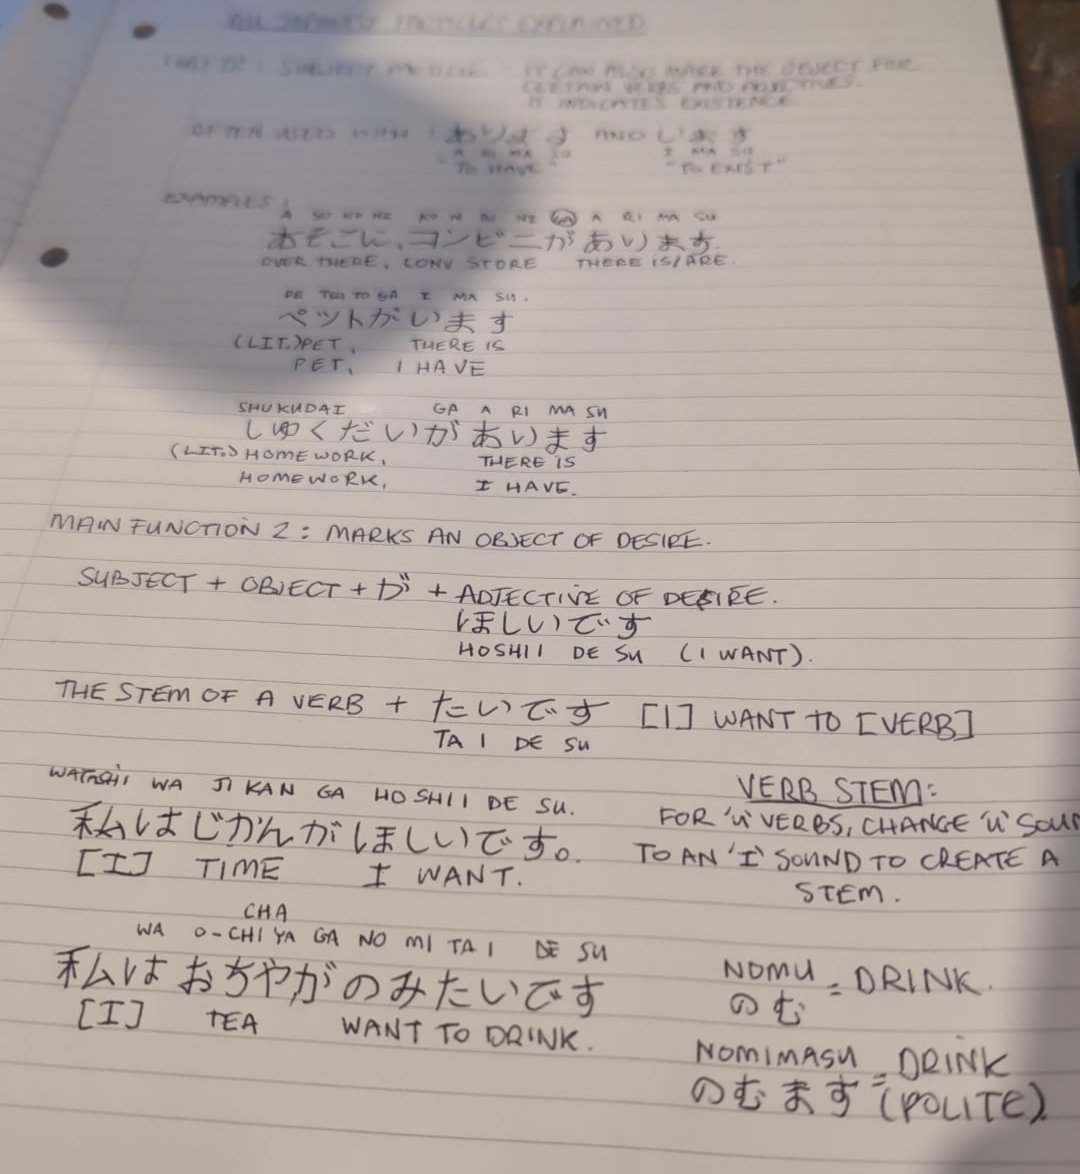 ALL JAPANESE PARTICLES EXPLAINED
(GA) が : SUBJECT IT CAN ALSO MARK THE OBJECT FOR
CERTAIN VERBS AND ADJECTIVES.
IT INDICATES EXISTENCE.
OFTEN USED WITH あります AND います
A RI MA SU I MA SU
"TO HAVE" "TO EXIST"
EXAMPLES:
A SO KO NI KO N BI NI GA A RI MA SU
あそこに、コンビニがあります.
OVER THERE, CONV STORE THERE IS/ARE.
PE TSU TO GA I MA SU.
ペットがいます
(LIT.) PET, THERE IS
PET, I HAVE
SHUKUDAI GA A RI MA SU
しゆくだいがあります
(LIT.) HOMEWORK, THERE IS
HOMEWORK, I HAVE.
MAIN FUNCTION 2: MARKS AN OBJECT OF DESIRE.
SUBJECT + OBJECT + が + ADJECTIVE OF DESIRE.
ほしいです
HOSHII DE SU (I WANT).
THE STEM OF A VERB + たいです [I] WANT TO [VERB]
TA I DE SU
WATASHI WA JI KAN GA HOSHII DE SU.
私はじかんがほしいです。
[I] TIME I WANT.
VERB STEM:
FOR 'U' VERBS, CHANGE 'U' SOUN
TO AN 'I' SOUND TO CREATE A
STEM.
CHA
WA O-CHI YA GA NO MI TA I DE SU
私はおちやがのみたいです
[I] TEA WANT TO DRINK.
NOMU = DRINK.
のむ
NOMIMASU = DRINK
のむます (POLITE)